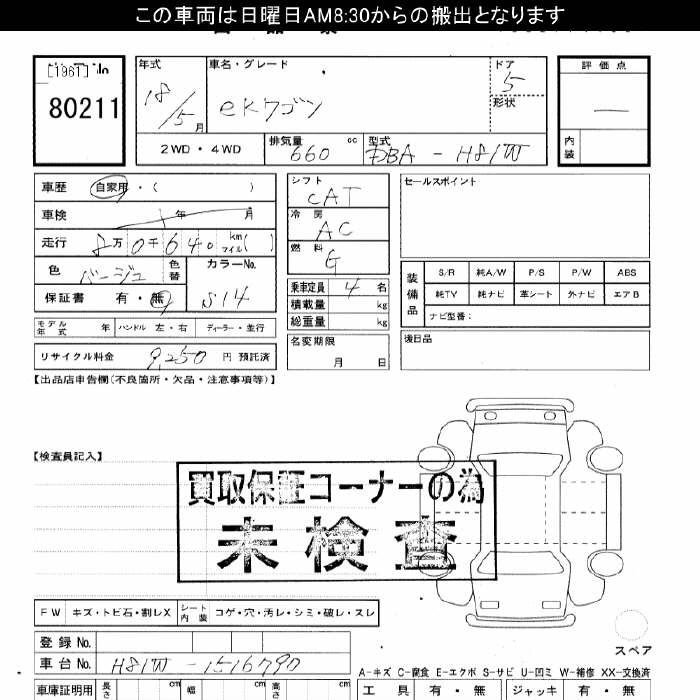 この車両は日曜日AM8:30からの搬出となります
80211
年式
18/5月
車名・グレード
eKワゴン
ドア
5
形状
評価点
内装
2WD・4WD
排気量
660 cc
型式
DBA - H81W
車歴 自家用・( )
車検 年 月
走行 8万0千640 km マイル( )
色 ベージュ 色替
カラーNo.
S14
保証書 有・無
モデル年式 年 ハンドル 左・右 ディーラー・並行
リサイクル料金 9,250 円 預託済
シフト
CAT
冷房
AC
燃料
G
乗車定員 4 名
積載量 kg
総重量 kg
名変期限
月 日
セールスポイント
装備品
S/R 純A/W P/S P/W ABS
純TV 純ナビ 革シート 外ナビ エアB
ナビ型番:
後日品
【出品店申告欄(不良箇所・欠品・注意事項等)】
【検査員記入】
買取保証コーナーの為
未検査
FW キズ・トビ石・割レX シート内装 コゲ・穴・汚レ・シミ・破レ・スレ
スペア
登録No.
車台No. H81W-1516790
A-キズ C-腐食 E-エクボ S-サビ U-凹ミ W-補修 XX-交換済
車庫証明用 長さ cm 幅 cm 高さ cm
工具 有・無 ジャッキ 有・無